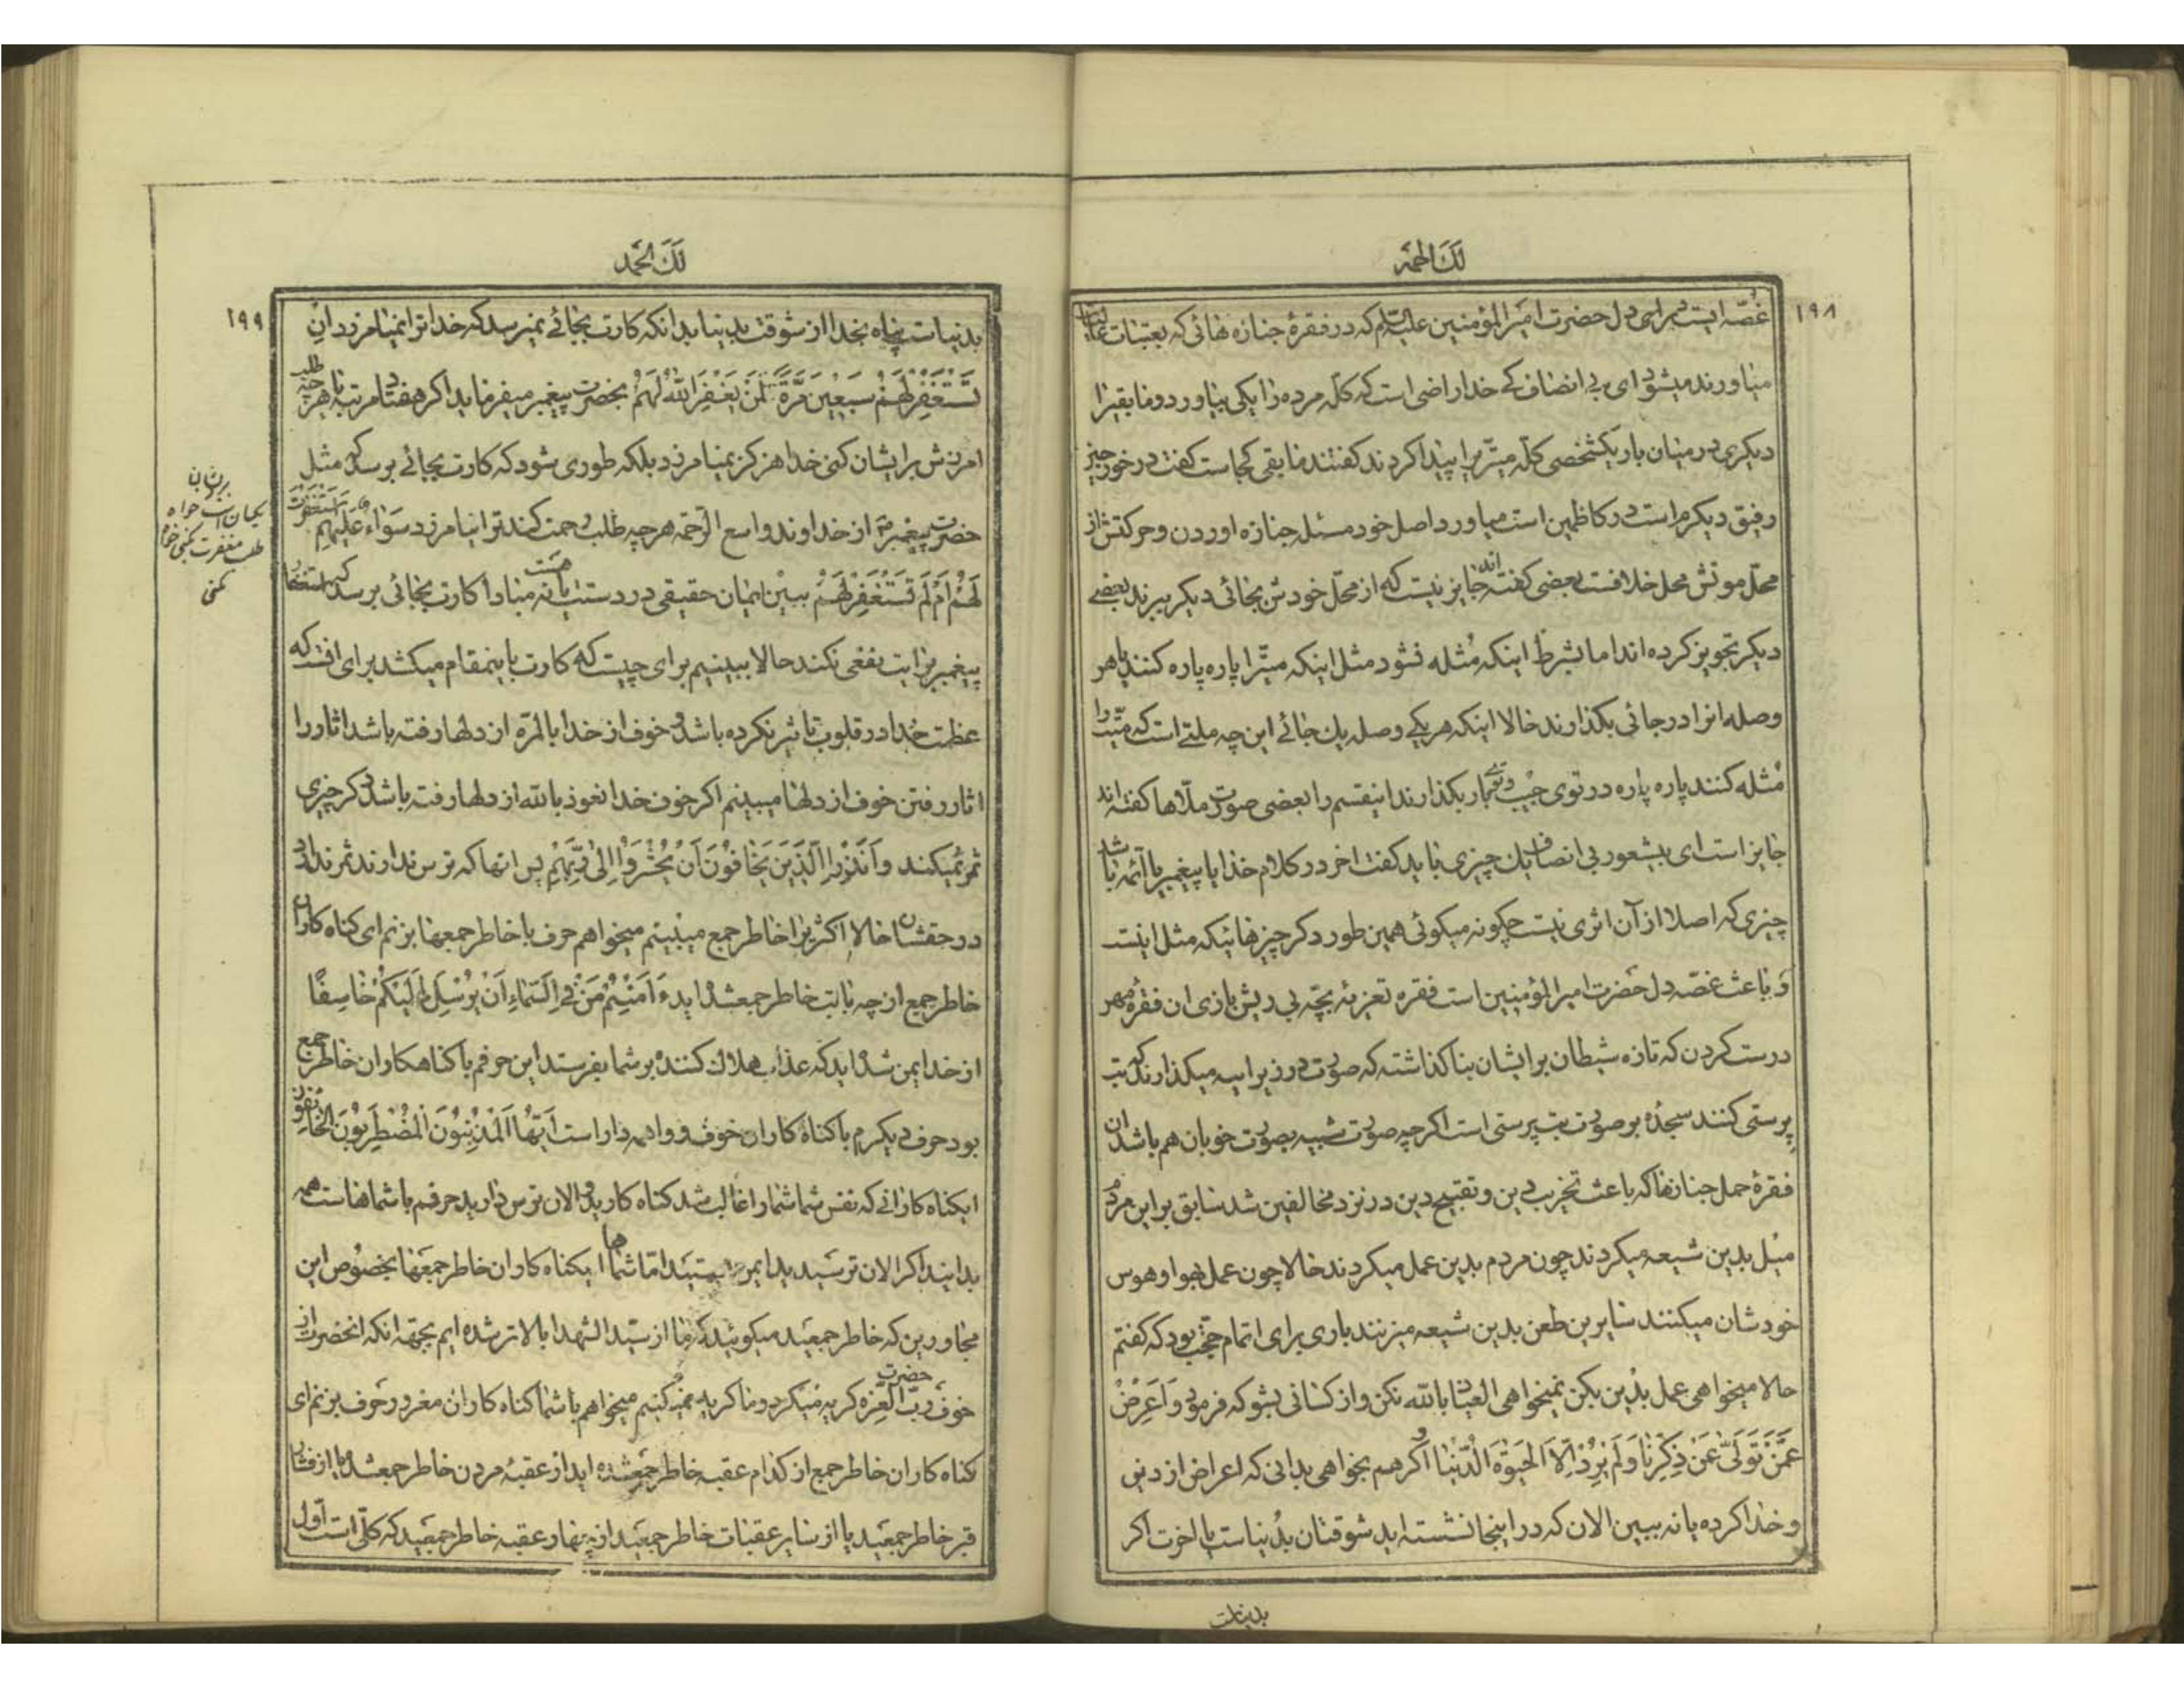 لك الحمد
١٩٨
غصّه ایست برای دل حضرت امیرالمؤمنین علیه السلام که در فقرهٔ جنازه هائی که بعتبات عالیات
میاورند میشود ای بی انصاف کی خدا راضی است که کلّه مرده را یکی بیاورد و مابقیرا
دیکری در میان بار یکشخصی کلّه میّتی را پیدا کردند کفتند مابقی کجاست کفت در خورجین
رفیق دیکرم است در کاظمین است میاورد اصل خود مسئله جنازه اوردن و حرکتش از
محلّ موتش محل خلافست بعضی کفته اند جایز نیست که از محلّ خودش بجائی دیکر ببرند بعضی
دیکر تجویز کرده اند اما بشرط اینکه مُثله نشود مثل اینکه میّترا پاره پاره کنند یا هر
وصله انرا در جائی بکذارند حالا اینکه هر یکی وصله یك جائی این چه ملتی است که میّت را
مُثله کنند پاره پاره در توی جیب و توی بار بکذارند اینقسم را بعضی صورت ملّاها کفته اند
جایز است ای بیشعور بی انصاف یك چیزی باید کفت اخر در کلام خدا یا پیغمبر یا ائمه باشد
چیزی که اصلا از آن اثری نیست چکونه میکوئی همین طور دکر چیزهائیکه مثل اینست
و باعث غصّه دل حضرت امیرالمؤمنین است فقره تعزیهٔ بچّه بی ریش بازی ان فقرهٔ مهر
درست کردن که تازه شیطان برایشان بنا کذاشته که صورت در زیر ابیه میکذارند که بت
پرستی کنند سجدهٔ بر صورت بت پرستی است اکرچه صورت شبیه بصورت خوبان هم باشد ان
فقرهٔ حمل جنازها که باعث تخریب دین و تقبیح دین در نزد مخالفین شد سابق بر این مردم
میل بدین شیعه میکردند چون مردم بدین عمل میکردند حالا چون عمل بهوا و هوس
خودشان میکنند سایرین طعن بدین شیعه میزنند باری برای اتمام حجّت بود که کفتم
حالا میخواهی عمل بدین بکن نمیخواهی العیاذ بالله نکن و از کسانی بشو که فرمود وَاَعرِضْ
عَمَّنْ تَوَلّیٰ عَنْ ذِکرِنا وَلَم یُرِدْ اِلاّ الحَیٰوةَ الدُّنیا و اکر هم بخواهی بدانی که اعراض از دین
و خدا کرده یا نه ببین الان که در اینجا نشسته اید شوقتان بدنیاست یا باخرت اکر
بدنیاست
لك الحمد
١٩٩
بدنیاست پناه بخدا از شوقت بدنیا بدانکه کارت بجائی نمیرسد که خدا ترا نمیامرزد اِنْ
تَسْتَغْفِرْ لَهُمْ سَبْعِینَ مَرَّةً لَنْ یَغْفِرَ اللهُ لَهُمْ بحضرت پیغمبر میفرماید اکر هفتاد مرتبه یا هر چه طلب
امرزش برایشان کنی خدا هرکز نمیامرزد بلکه طوری شود که کارت بجائی برسد که مثل
حضرت پیغمبری از خداوند واسع الرّحمه هر چه طلب رحمت کند ترا نیامرزد سَواءٌ عَلَیهِم اَسْتَغْفَرْتَ
لَهُمْ اَمْ لَمْ تَسْتَغْفِرْ لَهُمْ ببین ایمان حقیقی در دستت هست یا نه مبادا کارت بجائی برسد که استغفار
پیغمبر برایت نفعی نکند حالا ببینیم برای چیست که کارت باینمقام میکشد برای انست که
عظمت خدا در قلوب تاثیر نکرده باشد و خوف از خدا بالمرّه از دلها رفته باشد اثار را
اثار رفتن خوف از دلها میبینم اکر خوف خدا نعوذ بالله از دلها رفته باشد دکر چیزی
ثمر نمیکند وَاَنْذِرِ الَّذینَ یَخافُونَ اَنْ یُحْشَرُوا اِلیٰ رَبِّهِمْ پس انها که ترس ندارند ثمر ندارد
در حقشان حالا اکثریرا خاطر جمع میبینم میخواهم حرف با خاطر جمعها بزنم ای کناه کاران
خاطر جمع از چه بابت خاطر جمع شده اید ءَاَمِنْتُمْ مَنْ فِی السَّماءِ اَنْ یُرْسِلَ اِلَیْکُمْ خاسِفًا
از خدا ایمن شده اید که عذاب هلاك کننده بر شما بفرستد این حرفم با کناهکاران خاطر جمع
بود حرف دیکرم با کناه کاران خوف و واهمه دار است اَیُّهَا الْمُذْنِبُونَ الْمُضْطَرِبُونَ الخائِفُونَ
ایکناه کارانی که نفس شما شمارا غالب شد کناه کارید و الان ترس دارید حرفم با شماهاست همه
بدانید اکر الان ترسیدید ایمن هستید امّا شماها ایکناه کاران خاطر جمعها بخصوص این
مجاورین که خاطر جمعید میکوئید که ما از سیّد الشهدا بالاتر شده ایم بجهة انکه انحضرت از
خوف حضرت ربّ العزّه کریه میکرد و ما کریه نمیکنیم میخواهم با شما کناه کاران مغرور حرف بزنم ای
کناه کاران خاطر جمع از کدام عقبه خاطر جمع شده اید از عقبهٔ مردن خاطر جمع شده اید یا از فشار
قبر خاطر جمعید یا از سایر عقبات خاطر جمعید از چهار عقبه خاطر جمعید که کلّی است اوّل
طلب مغفرت کنی خواه
نکنی